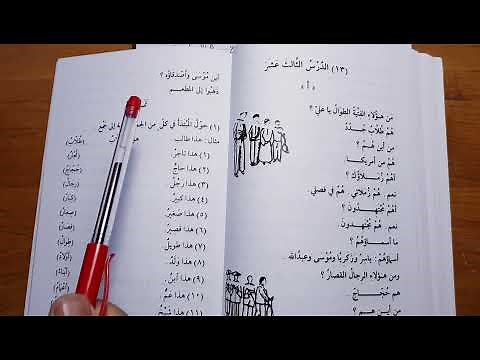 (١٣) الدَّرْسُ الثَّالِثَ عَشَرَ
- أ -
مَن هٰؤُلَاءِ الفِتْيَةُ الطِّوَالُ يَا عَلِيُّ ؟
هُمْ طُلَّابٌ جُدُدٌ
مِن أَيْنَ هُمْ ؟
هُمْ مِن أَمْرِيكَا.
أَهُمْ زُمَلَاؤُكَ ؟
نَعَم هُمْ زُمَلَائِي. هُمْ فِي فَصْلِي.
أَهُمْ مُجْتَهِدُونَ ؟
نَعَم. هُمْ مُجْتَهِدُونَ.
مَا أَسْمَاؤُهُمْ ؟
أَسْمَاؤُهُمْ : يَاسِرٌ وَزَكَرِيَّا وَمُوسَى وَعَبْدُاللهِ.
وَمَن هٰؤُلَاءِ الرِّجَالُ القِصَارُ ؟
هُم حُجَّاجٌ.
مِن أَيْنَ هُم ؟
أَيْنَ مُوْسَى وَأَصْدِقَاؤُه ؟
ذَهَبُوا إِلَى المَطْعَمِ.
(١) حَوِّلْ المُبْتَدَأَ فِي كُلٍّ مِنَ إِلَى جَمْعٍ
مثال : هذا طالب (طُلَّابٌ)
(١) هٰذَا تَاجِرٌ. (تُجَّارٌ)
(٢) هٰذَا حَاجٌّ. (حُجَّاجٌ)
(٣) هٰذَا رَجُلٌ. (رِجَالٌ)
(٤) هٰذَا كَبِيرٌ. (كِبَارٌ)
(٥) هٰذَا صَغِيرٌ. (صِغَارٌ)
(٦) هٰذَا قَصِيرٌ. (قِصَارٌ)
(٧) هٰذَا طَوِيلٌ. (طِوَالٌ)
(٨) هٰذَا وَلَدٌ. (أَوْلَادٌ)
(٩) هٰذَا ابْنٌ. (أَبْنَاءٌ)
(١٠) هٰذَا عَمٌّ (أَعْمَامٌ)
(١١) هٰذَا شَيْخٌ